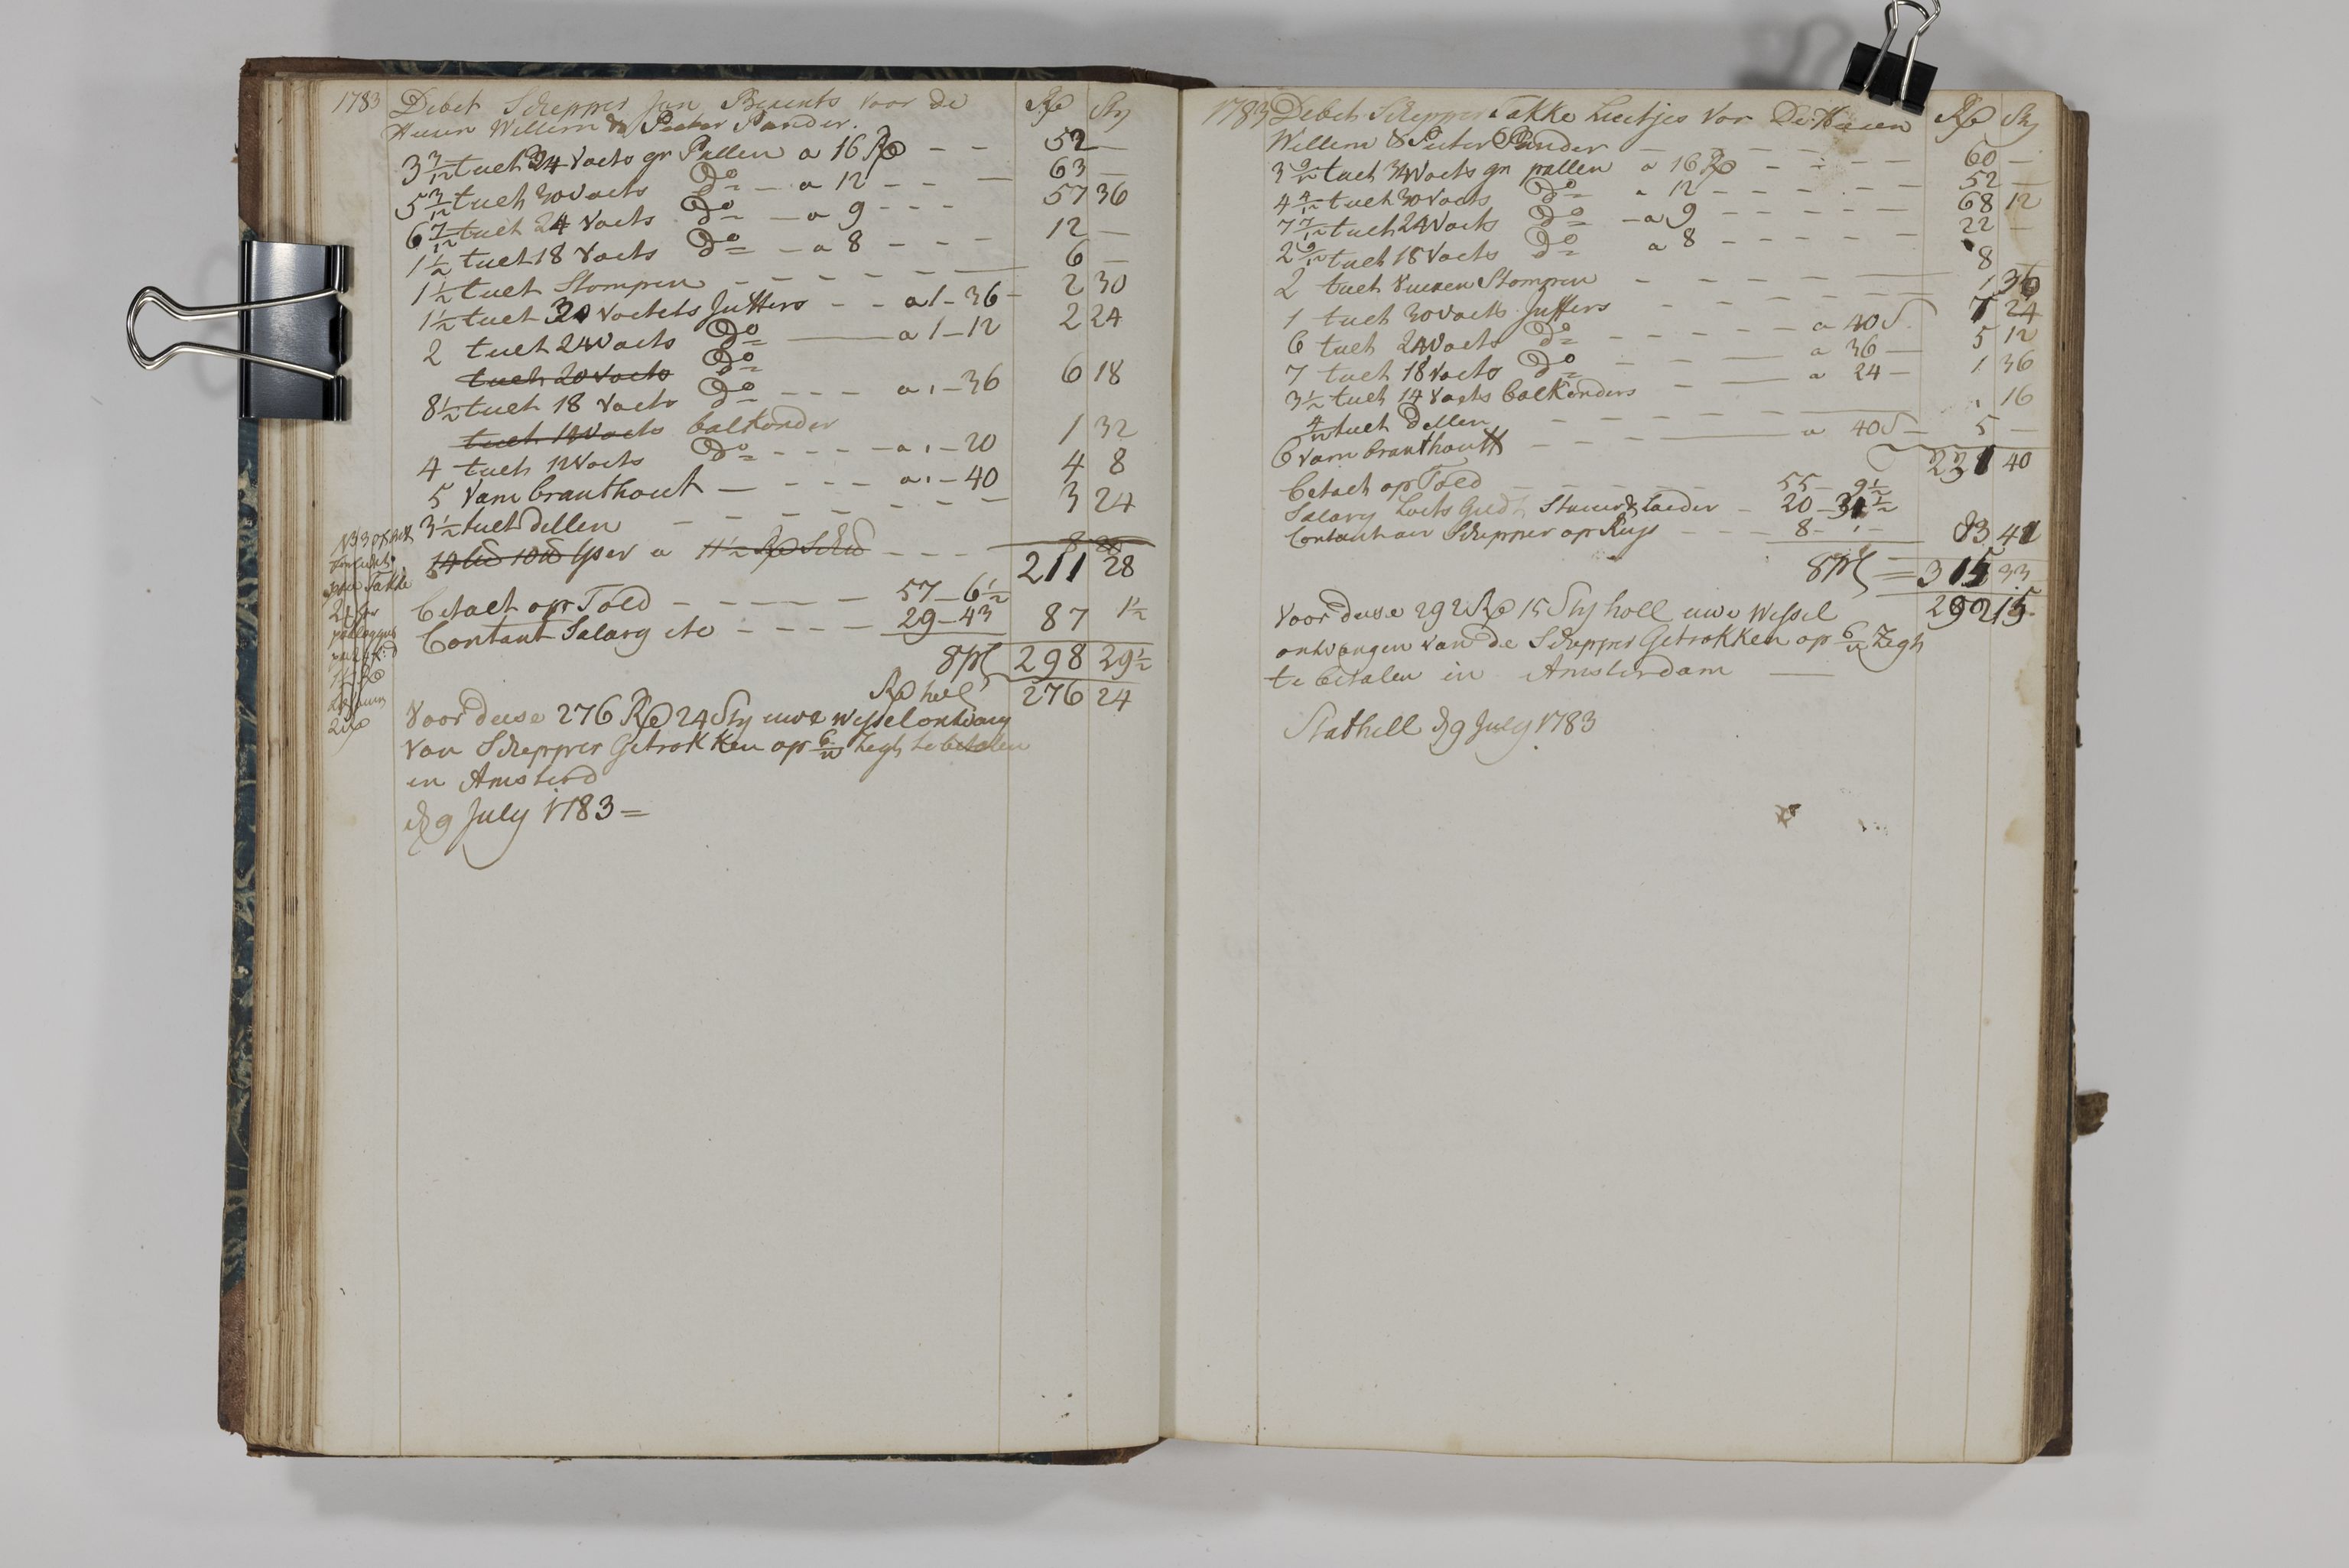 1783 Debet Schepper Jan Berents voor de Rd Sty
Heern Willem & Peeter Pander.
3 3/12 tuelt 34 voets gr Pallen a 16 Rd - - 52 -
5 3/12 tuelt 30 voets Do - a 12 - - - 63 -
6 7/12 tuelt 24 voets Do - a 9 - - - 57 36
1 1/2 tuelt 18 voets Do - a 8 - - - 12 -
1 1/2 tuelt Stompen - - - - - 6 -
1 1/2 tuelt 30 voetets Juffers - - a 1 - 36 - 2 30
2 tuelt 24 voets Do - a 1 - 12 2 24
tuelt 20 voets Do
8 1/2 tuelt 18 voets Do - - - a , - 36 6 18
tuelt 18 voets balkonder
4 tuelt 12 voets Do - - - - a , - 20 1 32
5 vam branthout - - - - a , - 40 4 8
3 1/2 tuelt dellen - - - - - - - 3 24
a 11 1/2 Rd - - -
211 28
betalt op Told - - - - - 57 - 6 1/2
Contant Salary etc - - - - 29 - 43 87 1 1/2
298 29 1/2
Rd holl 276 24
Voor dese 276 Rd 24 Sty uwe wessel ontvang
van Schepper Getrokken op 6/w Zegh te betalen
in Amsterd
d 9 July 1783 =
1783 Debet Schepper Takke Luitjes vor De Heeren Rd Sty
Willem & Pieter Pander
3 9/12 tuelt 34 voets gr pallen a 16 Rd - - - 60 -
4 4/12 tuelt 30 voets Do a 12 - - - - - 52 -
7 7/12 tuelt 24 voets Do - a 9 - - - - - 68 12
2 9/12 tuelt 18 voets Do a 8 - - - - - 22 -
2 tuelt Stompen - - - - - 8 -
1 tuelt 30 voets Juffers - - - - - 1 36
6 tuelt 24 voets Do - - - - - a 40 S. 7 24
7 tuelt 18 voets Do - - - a 36 - 5 12
3 1/2 tuelt 14 voets balkonders - - a 24 - 1 36
4/12 tuelt Dellen - - - - - , 16
6 vam branthout - - - - a 40 S - 5 -
231 40
betalt op Told 55 - 9 1/2
Salary Loets Geld, Stuer & Laeder - 20 - 31 1/2
Contant aen Schepper op Rejs - - - 8 - , - 83 41
315 33
292 15
Voor dese 292 Rd 15 Sty holl uwe Wessel
ontvangen van de Schepper Getrokken op 6/w Zegh
te betalen in Amsterdam
Stathell d 9 July 1783